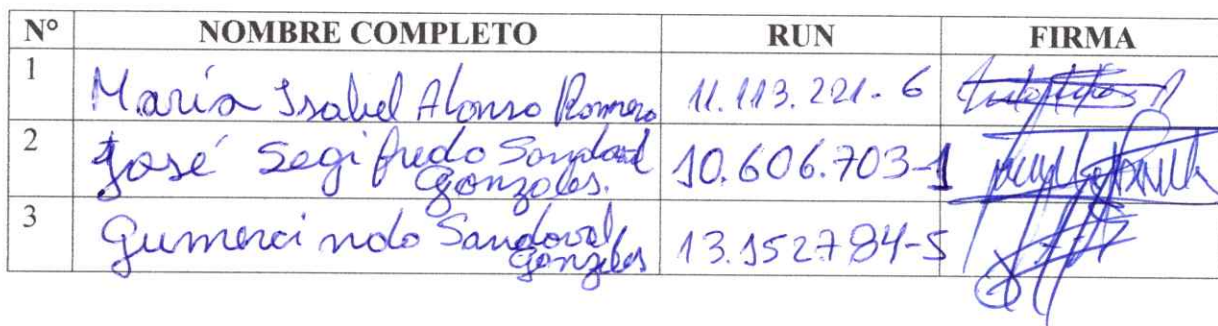 N° NOMBRE COMPLETO RUN FIRMA
1 María Isabel Alonso Romero 11.113.221-6
2 José Segifredo Sandoval
Gonzales. 10.606.703-1
3 Gumercindo Sandoval
Gonzales 13.152784-5